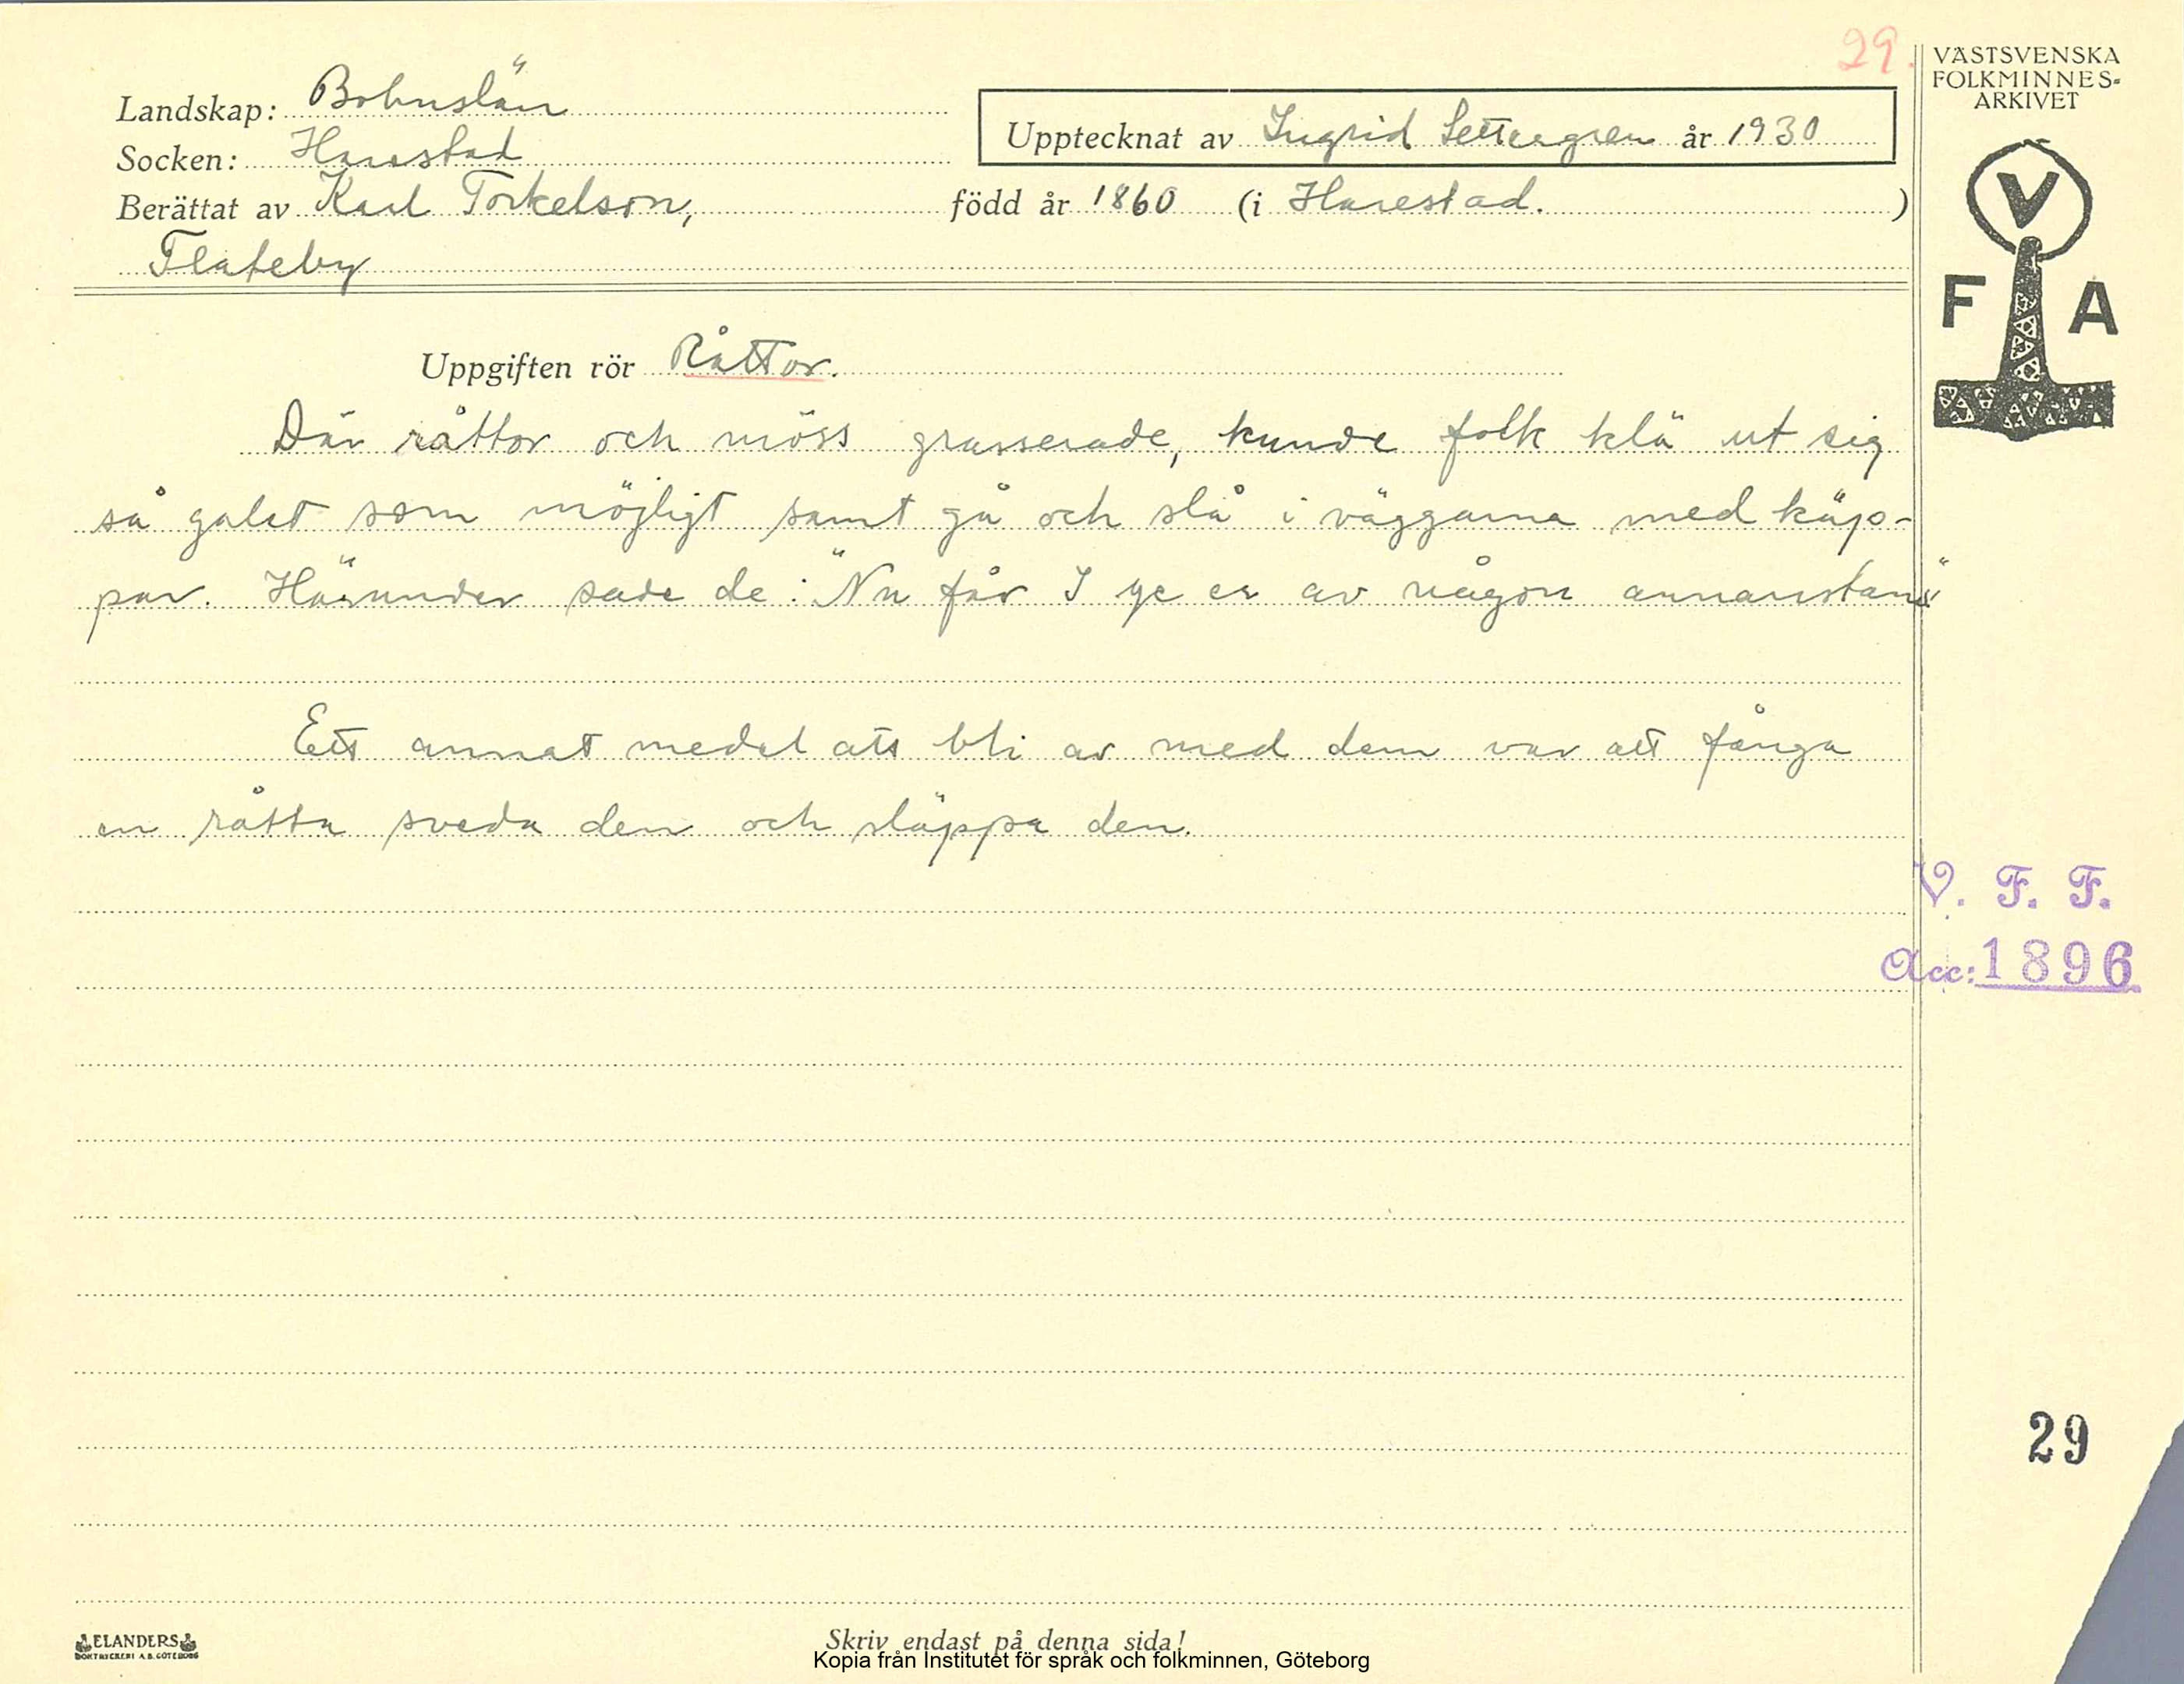 29.
VÄSTSVENSKA
FOLKMINNES-
ARKIVET
Landskap: Bohuslän
Upptecknat av Ingrid Settergren år 1930
Socken: Harestad
Berättat av Karl Torkelson, född år 1860 (i Harestad. )
Flateby
V
F A
Uppgiften rör Råttor.
Där råttor och möss grasserade, kunde folk klä ut sig
så galet som möjligt samt gå och slå i väggarna med käp-
par. Härunder sade de: "Nu får I ge er av någon annanstans"
Ett annat medel att bli av med dem var att fånga
en råtta sveda den och släppa den.
V. F. F.
Acc: 1896
29
ELANDERS
BOKTRYCKERI A.B. GÖTEBORG
Skriv endast på denna sida!
Kopia från Institutet för språk och folkminnen, Göteborg